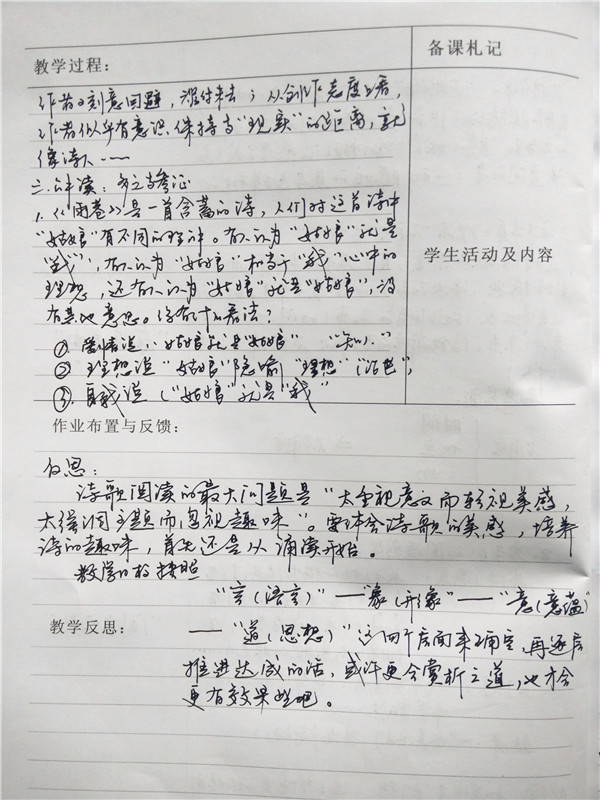 教学过程:
备课札记
作者的刻意回避，难付未去；从创作态度上看，
作者似乎有意识保持与“现实”的距离，就
像诗人……
三.研读：多方考证
1.《雨巷》是一首含蓄的诗，人们对这首诗中
“姑娘”有不同的理解。有人认为“姑娘”就是
“我”，有人认为“姑娘”相当于“我”心中的
理想，还有人认为“姑娘”就是“姑娘”，没
有其他意思。你有什么看法？
学生活动及内容
① 爱情说：姑娘就是“姑娘”
② 理想说 “姑娘”隐喻“理想”
③ 自我说（“姑娘”就是“我”
作业布置与反馈:
反思：
诗歌阅读的最大问题是“太重视意义而轻视美感，
太强调主题而忽视趣味”。要体会诗歌的美感，培养
诗的趣味，首先还是从诵读开始。
教学目标按照
“言（语言）”—“象（形象”—“意（意蕴）”
教学反思:
—“道（思想）”这四个层面来确定，再逐层
推进达成的话，或许更合赏析之道，也才会
更有效果些吧。